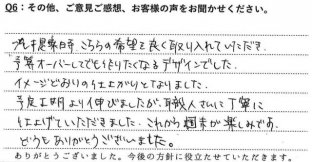 Q6：その他、ご意見ご感想、お客様の声をお聞かせください。
プラン提案時、こちらの希望を良く取り入れていただき、
予算オーバーしてでも作りたくなるデザインでした。
イメージどおりの仕上がりとなりました。
予定工期より伸びましたが、職人さんに丁寧に
仕上げていただきました。これから週末が楽しみです。
どうもありがとうございました。
ありがとうございました。今後の方針に役立たせていただきます。